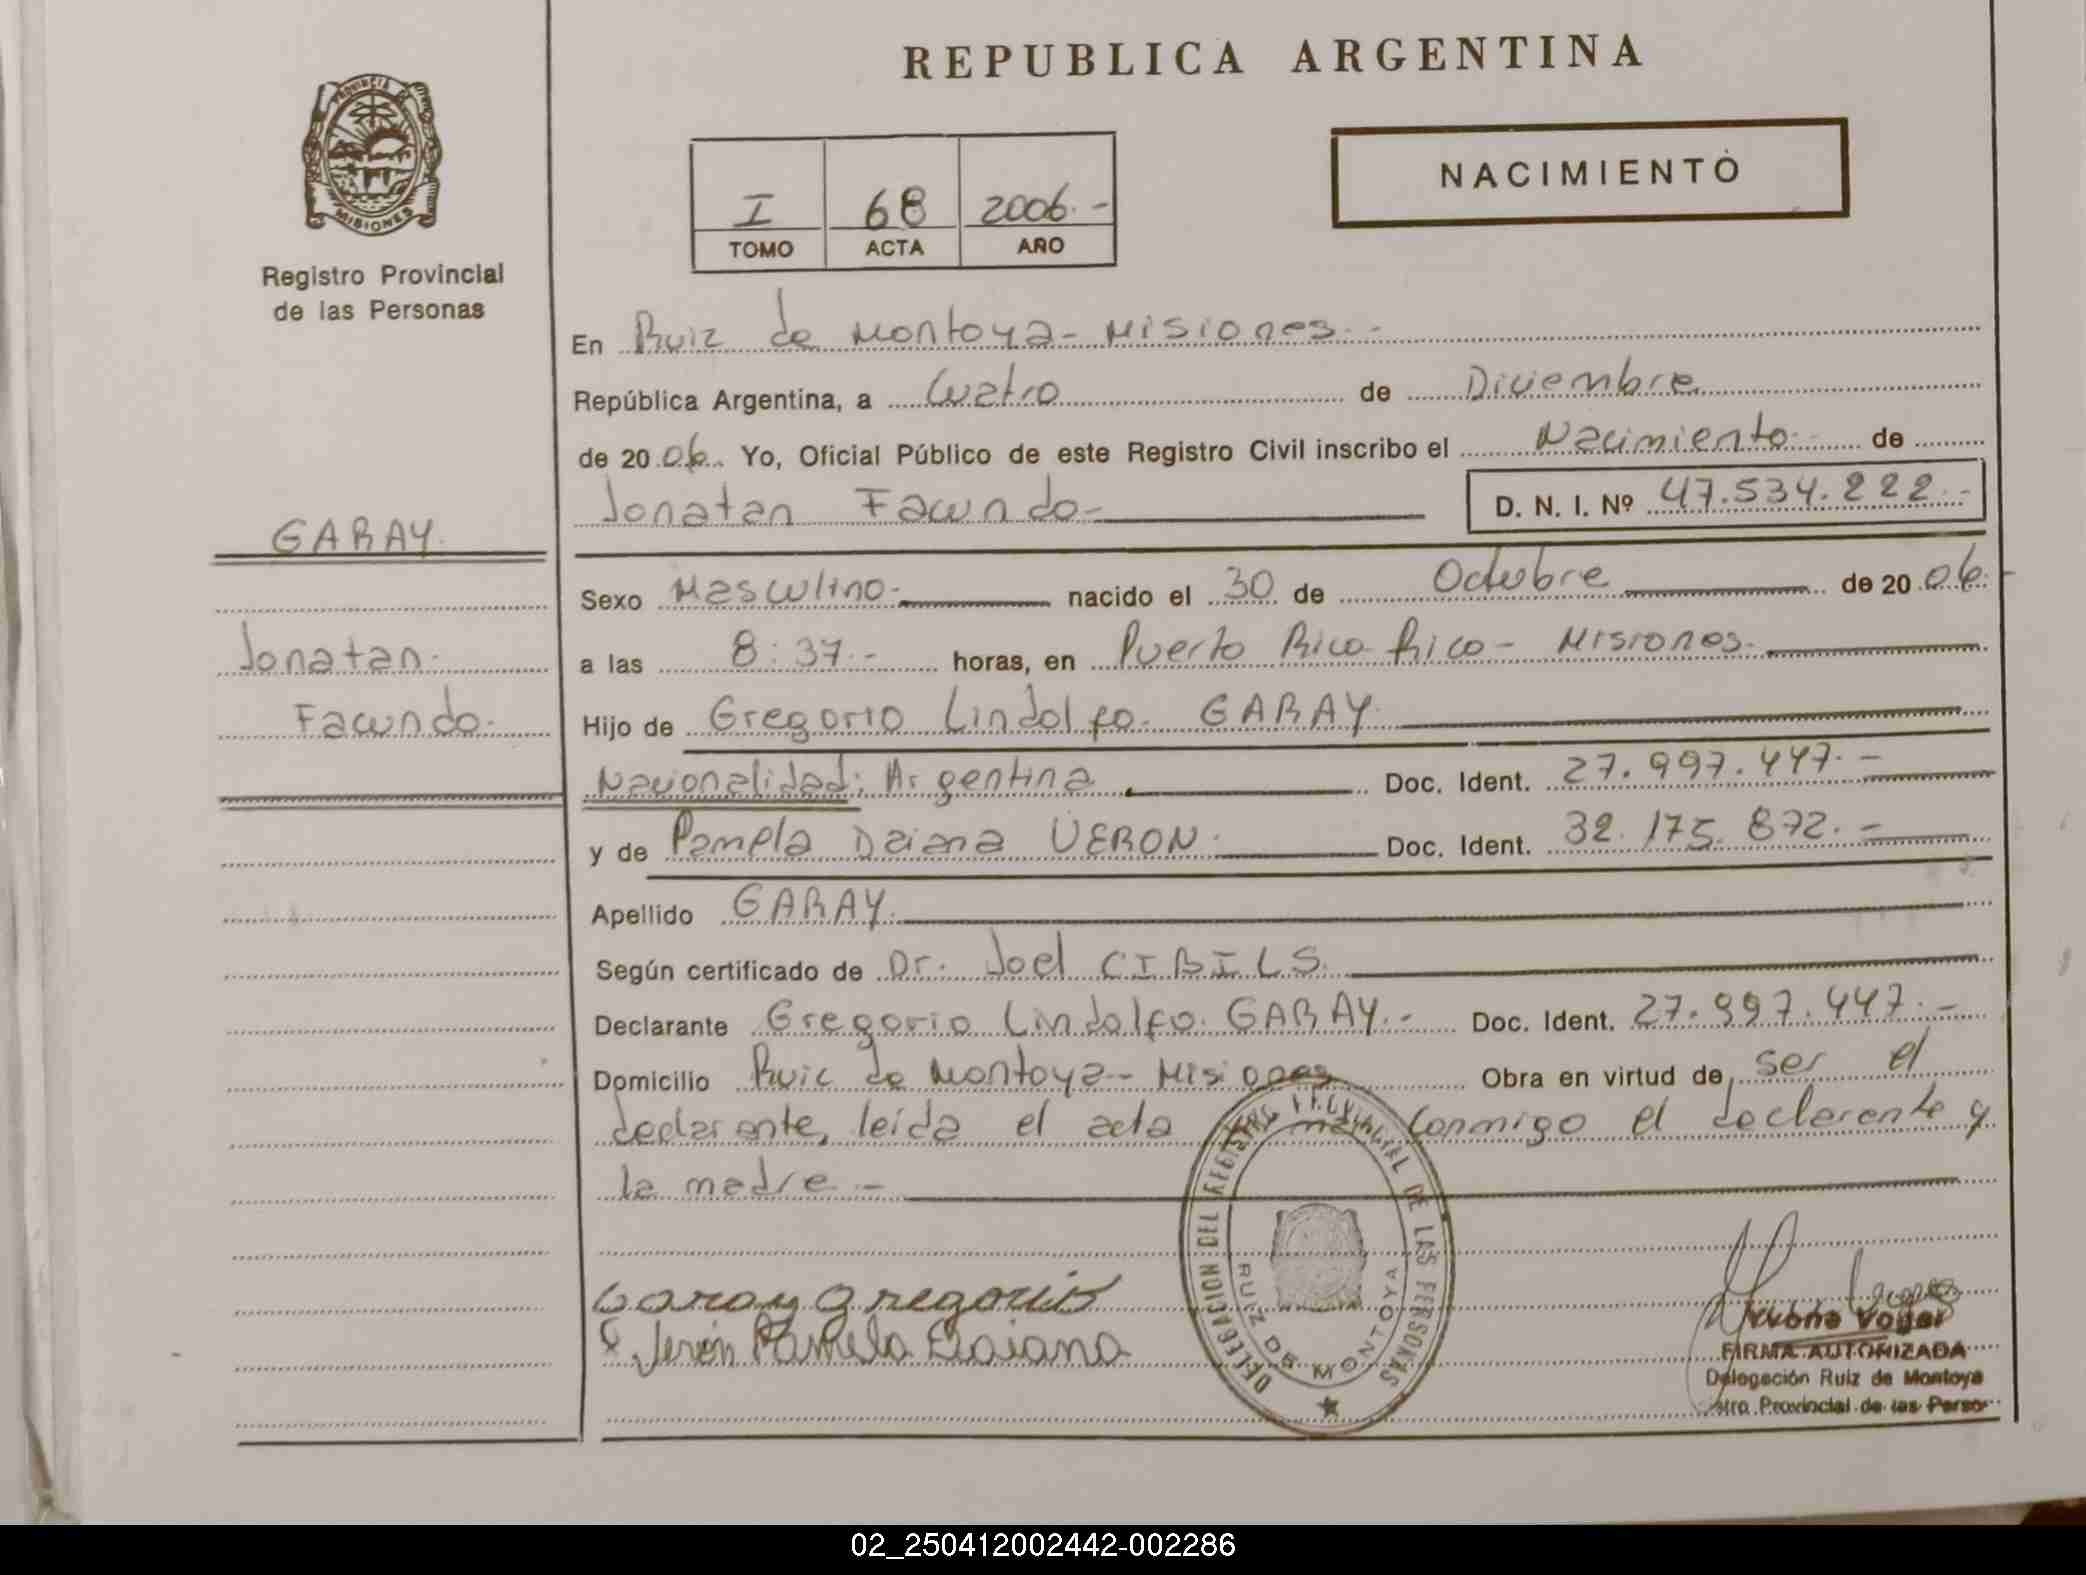 REPUBLICA ARGENTINA
PROVINCIA DE
MISIONES
Registro Provincial
de las Personas
NACIMIENTO
I 68 2006.-
TOMO ACTA AÑO
En Ruiz de Montoya - Misiones.-
República Argentina, a Cuatro de Diciembre
de 2006. Yo, Oficial Público de este Registro Civil inscribo el Nacimiento de
Jonatan Facundo- D. N. I. Nº 47.534.222.-
GARAY.
Jonatan
Facundo.
Sexo Masculino.- nacido el 30 de Octubre de 2006.-
a las 8:37.- horas, en Puerto Rico Rico - Misiones.
Hijo de Gregorio Lindolfo GARAY
Nacionalidad: Argentina Doc. Ident. 27.997.447.-
y de Pamela Daiana VERON. Doc. Ident. 32.175.872.-
Apellido GARAY.
Según certificado de Dr. Joel CIBILS.
Declarante Gregorio Lindolfo GARAY.- Doc. Ident. 27.997.447.-
Domicilio Ruiz de Montoya - Misiones Obra en virtud de ser el
declarante, leída el acta conmigo el declarante y
la madre.-
Garay Gregorio
Verón Pamela Daiana
DELEGACION DEL REGISTRO PROVINCIAL DE LAS PERSONAS
RUIZ DE MONTOYA
FIRMA AUTORIZADA
Delegación Ruiz de Montoya
Provincial de las Perso
02_250412002442-002286